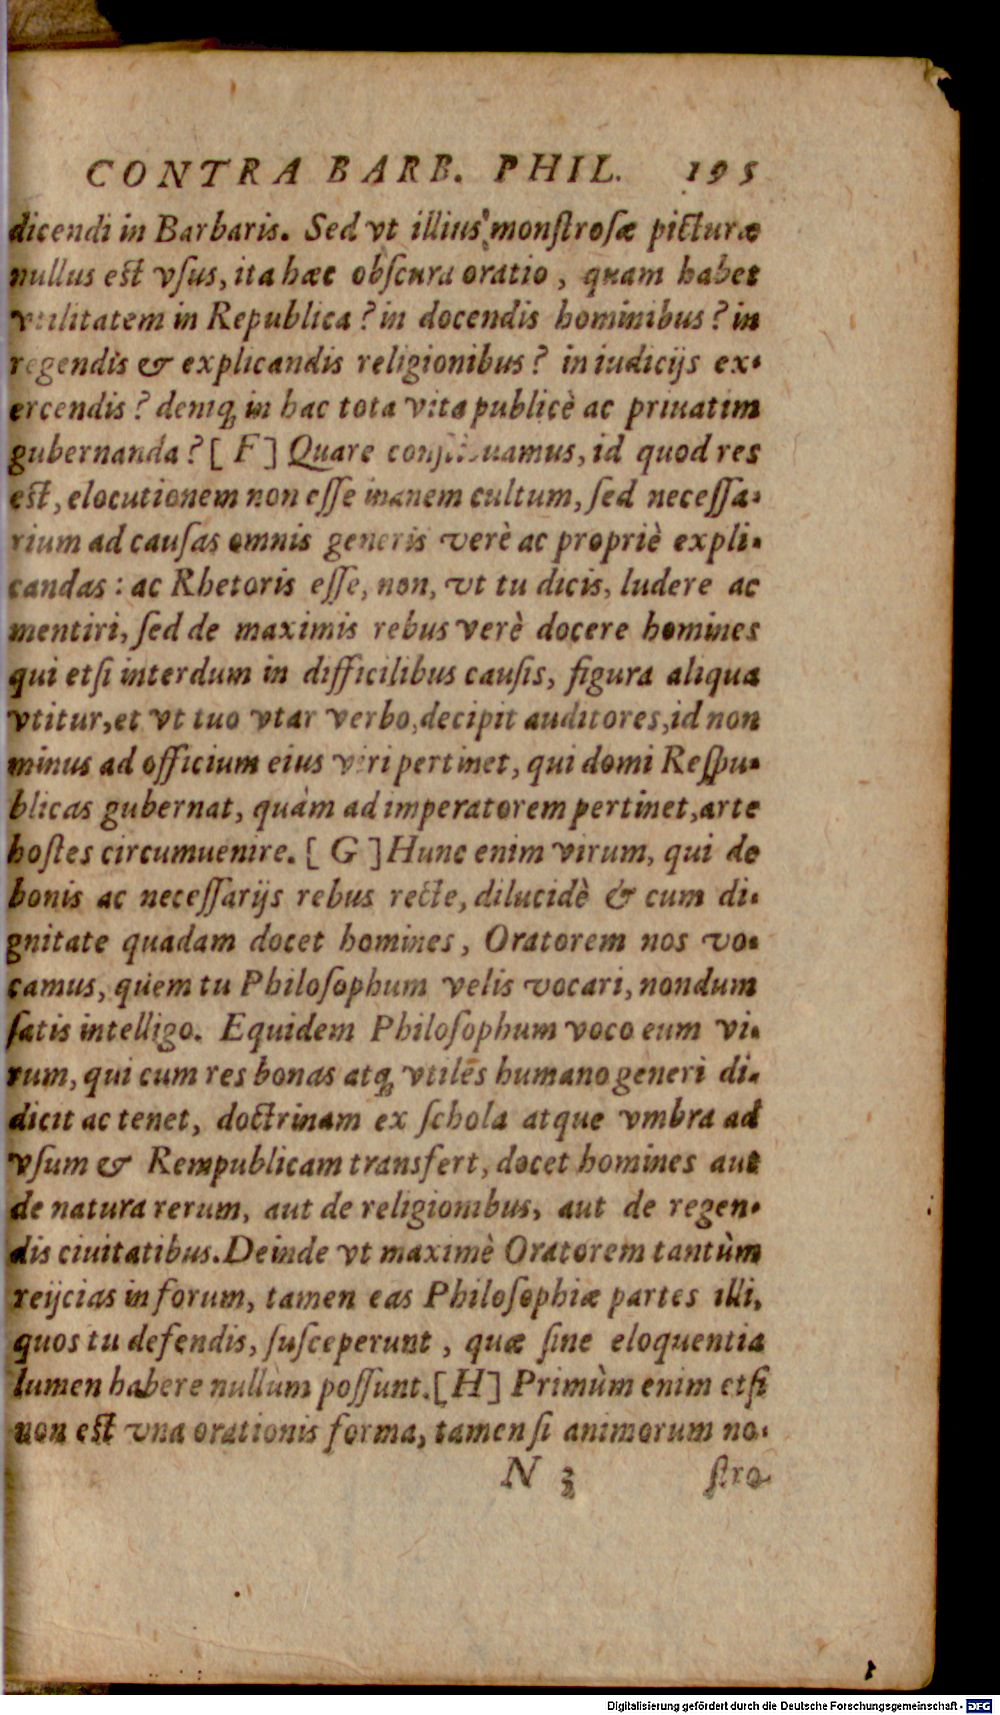 CONTRA BARB. PHIL. 195
dicendi in Barbaris. Sed vt illius monſtroſæ picturæ
nullus eſt vſus, ita hæc obſcura oratio, quam habet
vtilitatem in Republica? in docendis hominibus? in
regendis & explicandis religionibus? in iudicijs ex-
ercendis? deniq; in hac tota vita publicè ac priuatim
gubernanda? [ F ] Quare conſtituamus, id quod res
eſt, elocutionem non eſſe inanem cultum, ſed neceſſa-
rium ad cauſas omnis generis verè ac propriè expli-
candas: ac Rhetoris eſſe, non, vt tu dicis, ludere ac
mentiri, ſed de maximis rebus verè docere homines
qui etſi interdum in difficilibus cauſis, figura aliqua
vtitur, et vt tuo vtar verbo, decipit auditores, id non
minus ad officium eius viri pertinet, qui domi Reſpu-
blicas gubernat, quàm ad imperatorem pertinet, arte
hoſtes circumuenire. [ G ] Hunc enim virum, qui de
bonis ac neceſſarijs rebus recte, dilucidè & cum di-
gnitate quadam docet homines, Oratorem nos vo-
camus, quem tu Philoſophum velis vocari, nondum
ſatis intelligo. Equidem Philoſophum voco eum vi-
rum, qui cum res bonas atq; vtiles humano generi di-
dicit ac tenet, doctrinam ex ſchola atque vmbra ad
vſum & Rempublicam transfert, docet homines aut
de natura rerum, aut de religionibus, aut de regen-
dis ciuitatibus. Deinde vt maximè Oratorem tantùm
reijcias in forum, tamen eas Philoſophiæ partes illi,
quos tu defendis, ſuſceperunt, quæ ſine eloquentia
lumen habere nullum poſſunt. [ H ] Primùm enim etſi
non eſt vna orationis forma, tamen ſi animorum no-
N 3 ſtro-
Digitalisierung gefördert durch die Deutsche Forschungsgemeinschaft - DFG